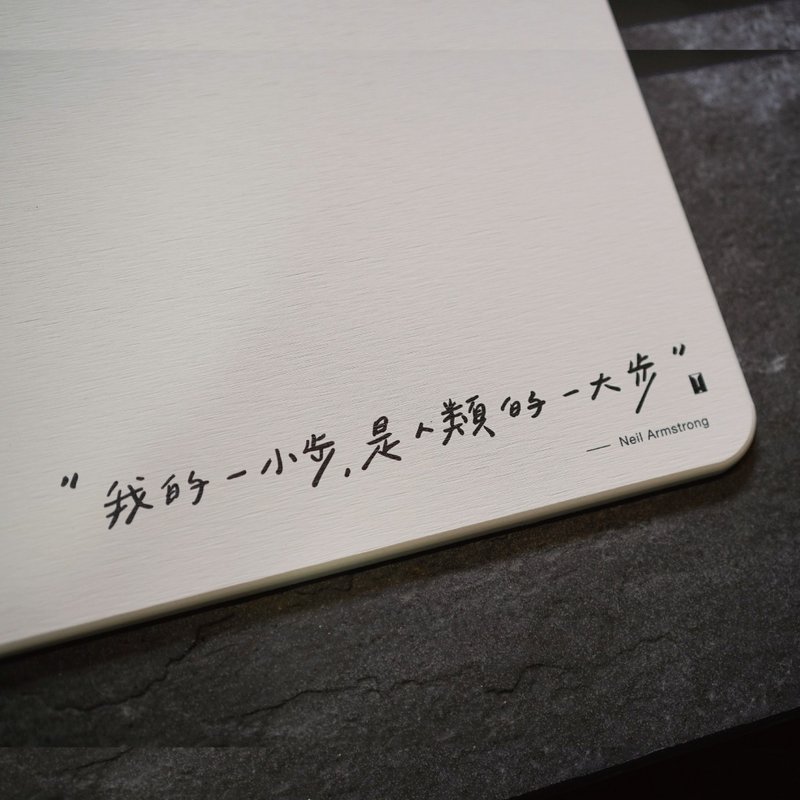 "我的一小步,是人類的一大步"
— Neil Armstrong